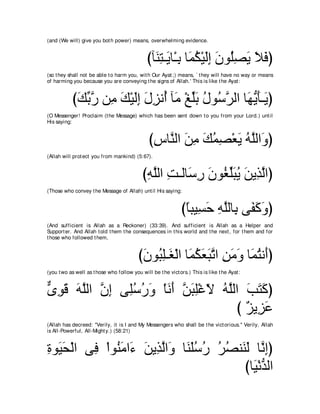 (and (We will) give you both power) means, overwhelming evidence.
(فَلاَ يَصِلُونَ إِلَيْكُمَا بِـَايَـتِنَآ)
(so they shall not be able to harm you, with Our Ayat;) means, `they will have no way or means
of harming you because you are conveying the signs of Allah.' This is like the Ayat:
(يَـأَيُّهَا الرَّسُولُ بَلِّغْ مَآ أُنزِلَ إِلَيْكَ مِن رَّبِّكَ)
(O Messenger! Proclaim (the Message) which has been sent down to you from your Lord.) until
His saying:
(وَاللَّهُ يَعْصِمُكَ مِنَ النَّاسِ)
(Allah will protect you from mankind) (5:67).
(الَّذِينَ يُبَلِّغُونَ رِسَالَـتِ اللَّهِ)
(Those who convey the Message of Allah) until His saying:
(وَكَفَى بِاللَّهِ حَسِيباً)
(And sufficient is Allah as a Reckoner) (33:39). And sufficient is Allah as a Helper and
Supporter. And Allah told them the consequences in this world and the next, for them and for
those who followed them,
(أَنتُمَا وَمَنِ اتَّبَعَكُمَا الْغَـلِبُونَ)
(you two as well as those who follow you will be the victors.) This is like the Ayat:
(كَتَبَ اللَّهُ لاّغْلِبَنَّ أَنَاْ وَرُسُلِى إِنَّ اللَّهَ قَوِىٌّ
عَزِيزٌ )
(Allah has decreed: "Verily, it is I and My Messengers who shall be the victorious." Verily, Allah
is All-Powerful, All-Mighty.) (58:21)
(إِنَّا لَنَنصُرُ رُسُلَنَا وَالَّذِينَ ءَامَنُواْ فِى الْحَيَوةِ
الدُّنْيَا)